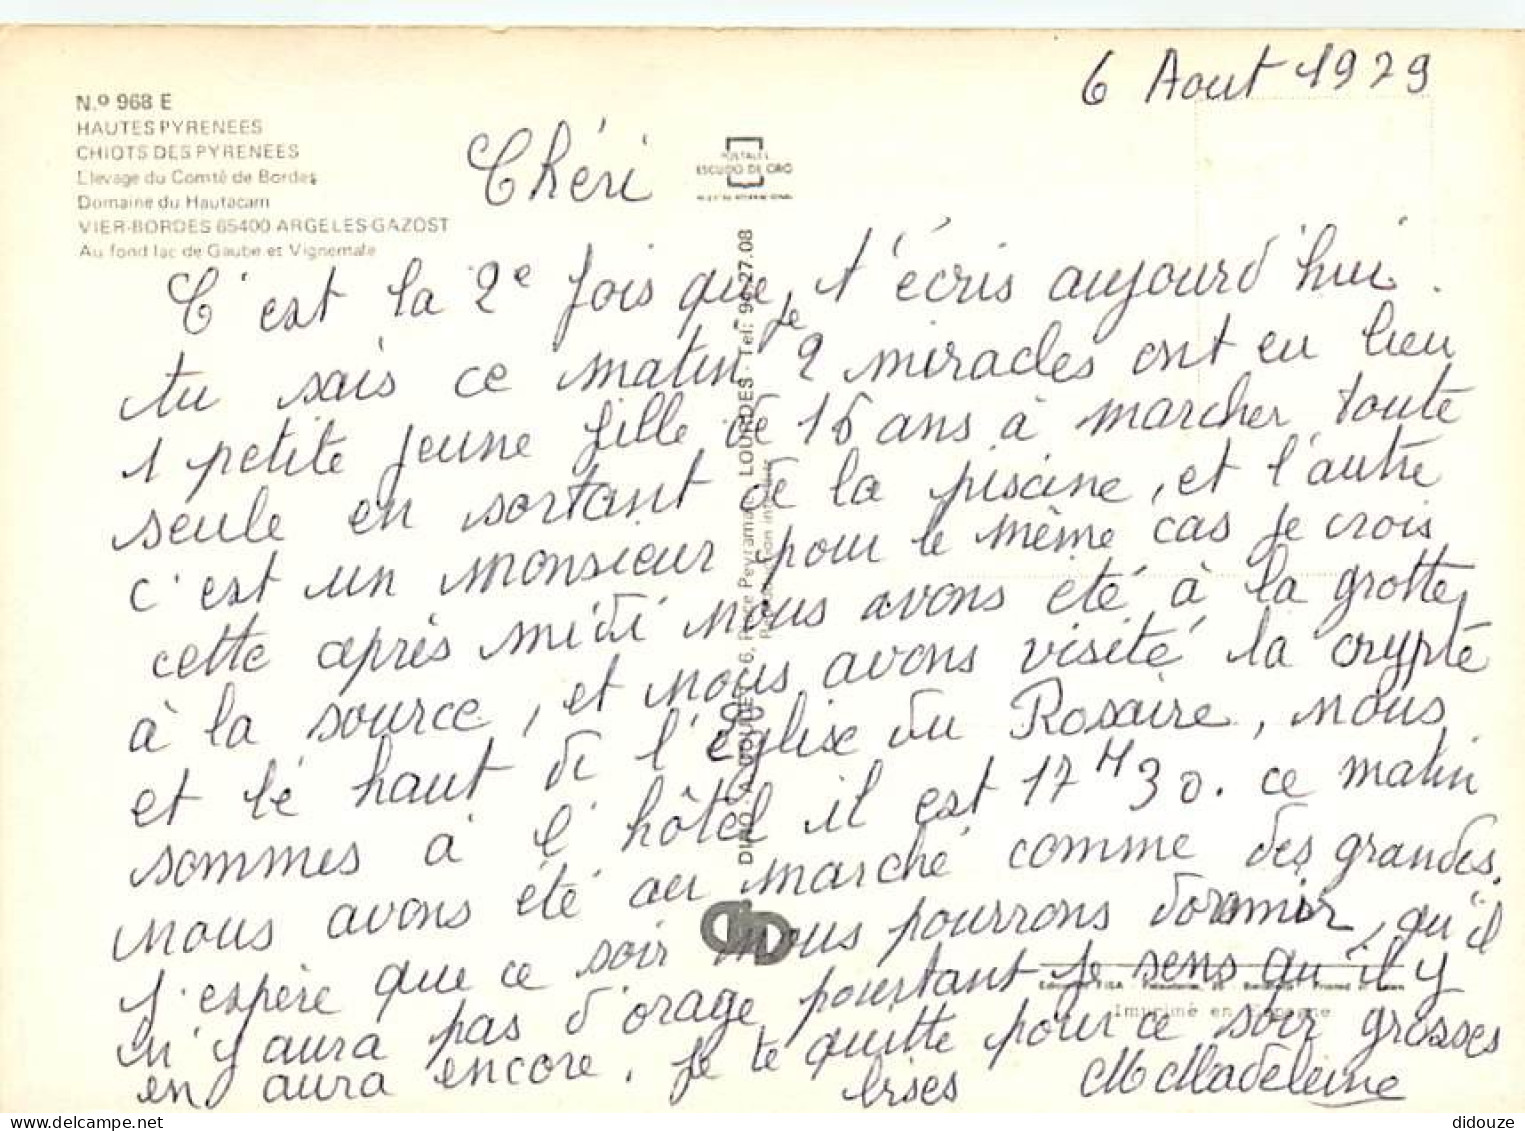 6 Aout 1979
N.º 968 E
HAUTES PYRENEES
CHIOTS DES PYRENEES
Elevage du Comté de Bordes
Domaine du Hautacam
VIER-BORDES 65400 ARGELES-GAZOST
Au fond lac de Gaube et Vignemale
POSTALES
ESCUDO DE ORO
Chéri
C'est la 2e fois que je t'écris aujourd'hui.
tu sais ce matin 2 miracles ont eu lieu
1 petite jeune fille de 16 ans à marcher toute
seule en sortant de la piscine, et l'autre
c'est un monsieur pour le même cas je crois
cette après midi nous avons été à la grotte,
à la source, et nous avons visité la crypte
et le haut de l'église du Rosaire, nous
sommes à l'hôtel il est 17 H 30. ce matin
nous avons été au marché comme des grandes,
j'espère que ce soir nous pourrons dormir, qu'il
n'y aura pas d'orage pourtant je sens qu'il y
en aura encore. je te quitte pour ce soir grosses
bises M Madeleine
6, Place Peyramale LOURDES - Tel: 94.27.08
Imprimé en Espagne
didouze